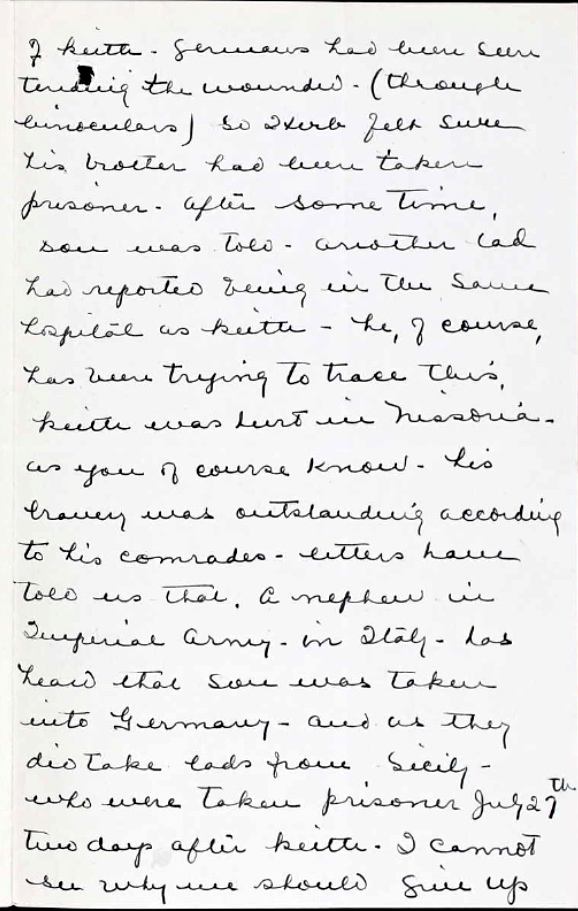 of Keith - Germans had been seen
tending the wounded - (through
binoculars) so Herb felt sure
his brother had been taken
prisoner - after some time,
son was told - another lad
had reported being in the same
hospital as Keith - he, of course,
has been trying to trace this,
Keith was hurt in Nissoria -
as you of course know - his
bravery was outstanding according
to his comrades - letters have
told us that. A nephew in
Imperial Army - in Italy - has
heard that son was taken
into Germany - and as they
did take lads from Sicily -
who were taken prisoner July 27th
two days after Keith - I cannot
see why we should give up